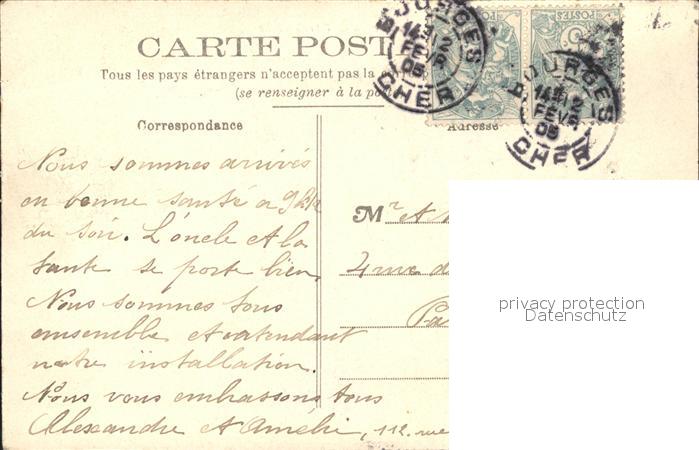 CARTE POST
Tous les pays étrangers n'acceptent pas la
(se renseigner à la
BOURGES
14 12
FEVR
05
CHER
BOURGES
14 12
FEVR
05
CHER
Correspondance
Adresse
Nous sommes arrivés
en bonne santé a 9 h 1/2
du soir. L'oncle et la
tante se porte bien
Nous sommes tous
ensemble et attendant
notre installation.
Nous vous embrassons tous
Alexandre et Amélie, 112. rue
Mr et
4 rue d
Pa
privacy protection
Datenschutz